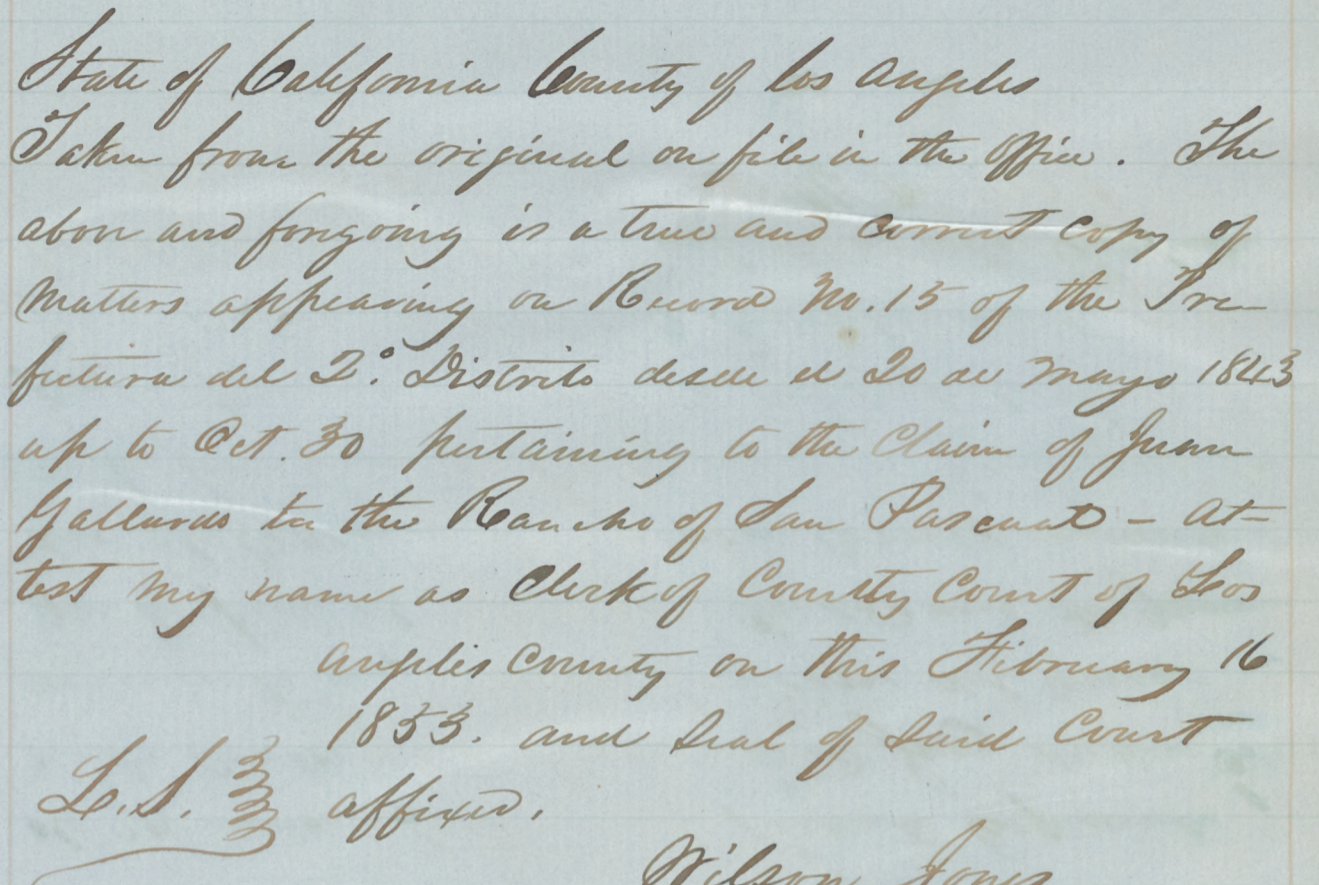 State of California County of Los Angeles
Taken from the original on file in the office. The
above and foregoing is a true and correct copy of
matters appearing on Record No. 15 of the Pre-
fectura del 2º. Distrito desde el 20 de Mayo 1843
up to Oct. 30 pertaining to the Claim of Juan
Gallardo to the Rancho of San Pascual – At-
test my name as Clerk of County Court of Los
Angeles County on this February 16
1853. and Seal of said Court
L.S. affixed.
Wilson Jones